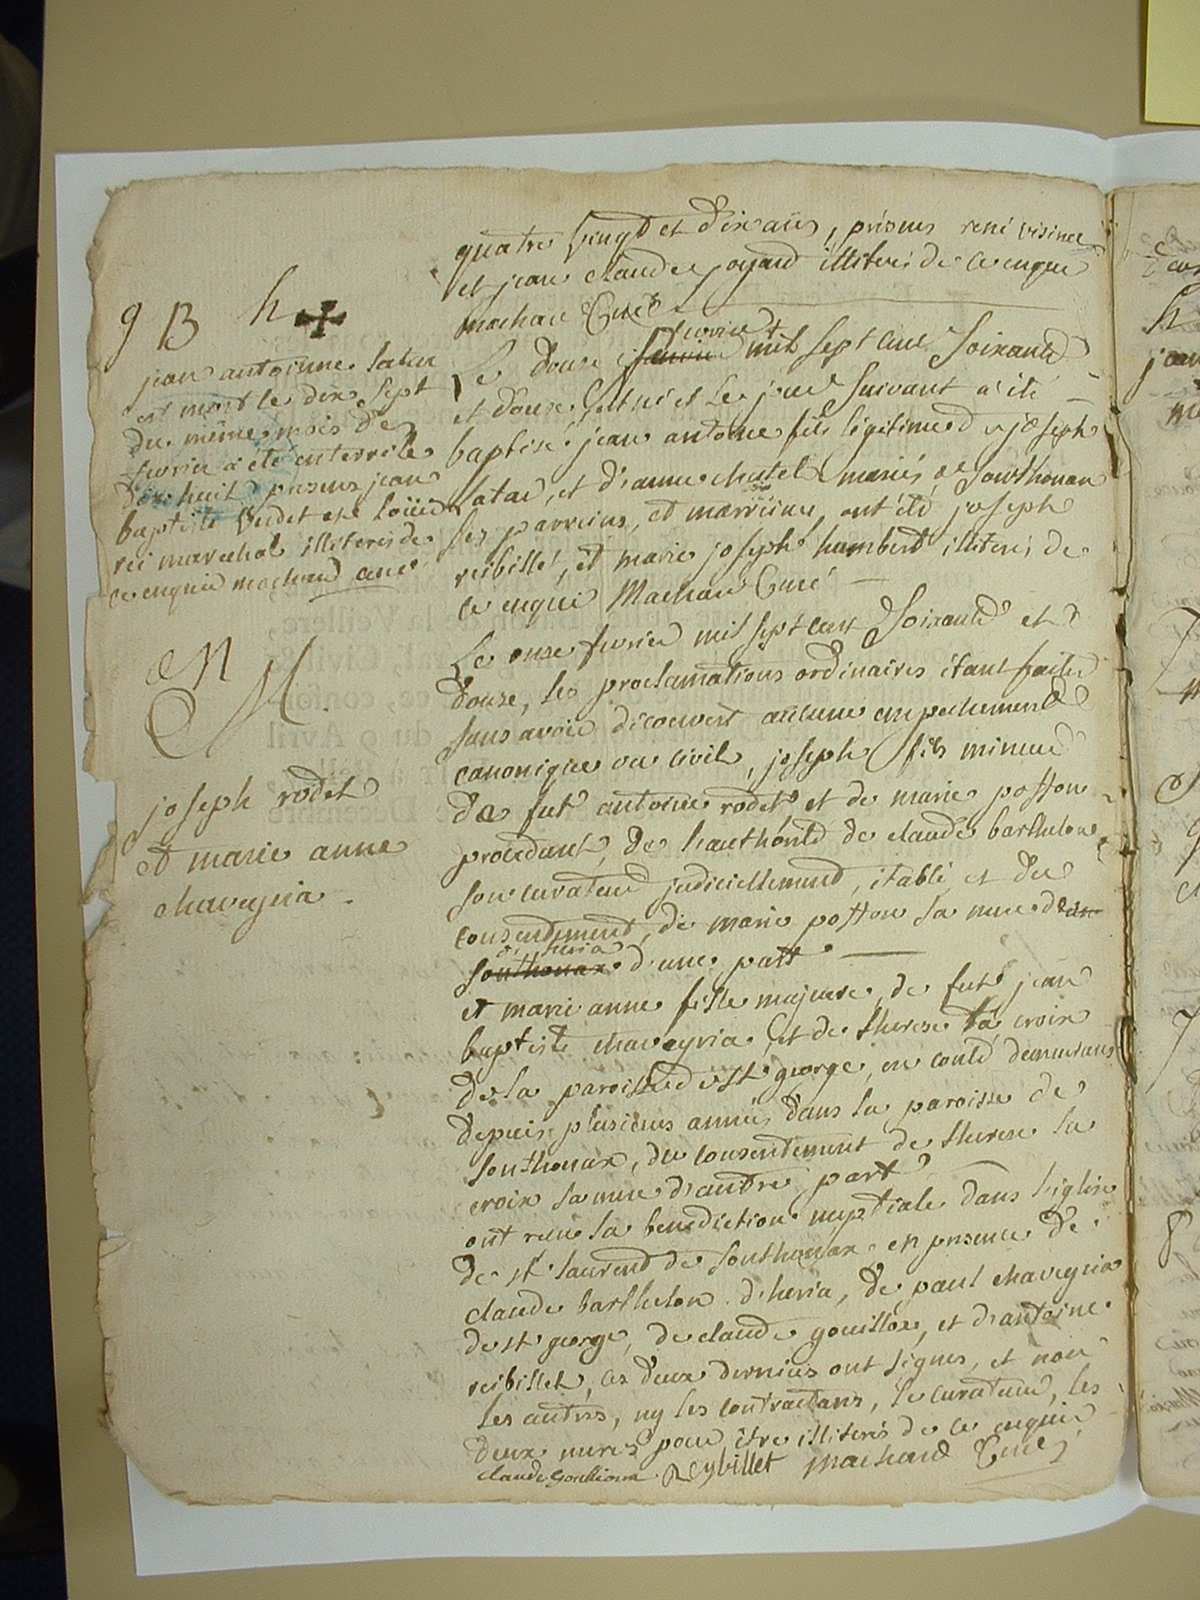 quatre vingt et dix ans, présens rené visinet
et jean claude joyard illiterés de ce enquis
machard Curé
g B h
jean antoinne latar
est mort le dix sept
du même mois de
fevrier a été enterré le
dix huit presens jean
baptiste Verdet et
marechal illiterés de
ce enquis machard curé
Le douse fevrier mil sept cent soixante
et douse est né et le jour suivant a été
baptisé jean antoine fils légitime de joseph
latar, et d'anne chatel mariés de sonthonax
ses parreins, et marreine, ont été joseph
reibillet, et marie joseph humbert illiterés de
ce enquis Machard Curé
M
joseph rodet
et marie anne
chaveyria
Le onse fevrier mil sept cent soixante et
douse, les proclamations ordinaires étant faites
sans avoir découvert aucune empechement
canonique ou civil, joseph fils mineur
de fut antoine rodet et de marie posson
procédant, de l'authorité de claude barthelon
son curateur judiciellement, établi et du
consentement, de marie posson sa mere de
d'heria
sonthonax d'une part
et marie anne fille majeure de fut jean
baptiste chaveyria, et de therese la croix
de la paroisse de st george, en comté demeurant
depuis plusieurs années dans la paroisse de
sonthonax, du consentement de therese la
croix sa mere d'autre part
ont reçu la benediction nuptiale dans l'eglise
de st laurent de sonthonax en presence de
claude barthelon d'heria, de paul chaveyria
de st george, de claude gouillon, et d'antoine
reibillet, ces deux derniers ont signés, et non
les autres, ny les contractans, le curateur, les
deux meres pour être illiterés de ce enquis
claude Goullioux Reybillet machard Curé